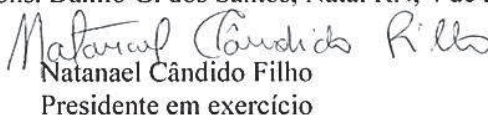 Natanael Cândido Filho
Natanael Cândido Filho
Presidente em exercício